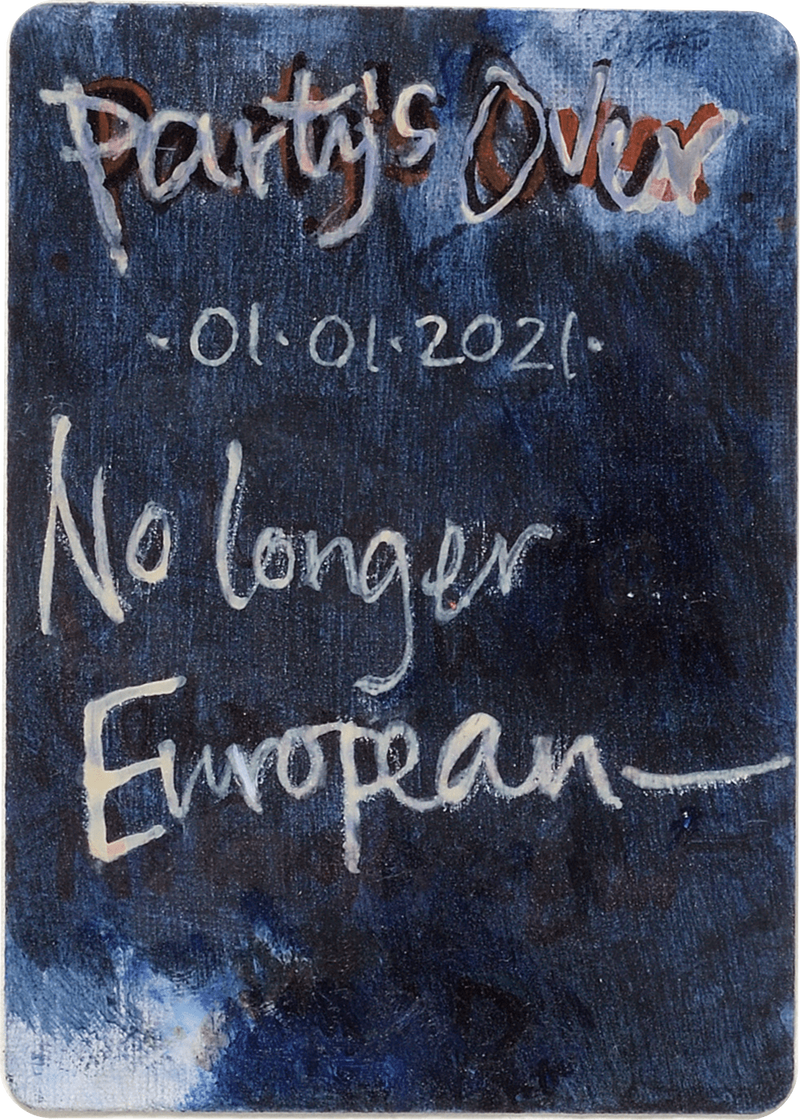 Party's Over
·01·01·2021·
No longer
European—